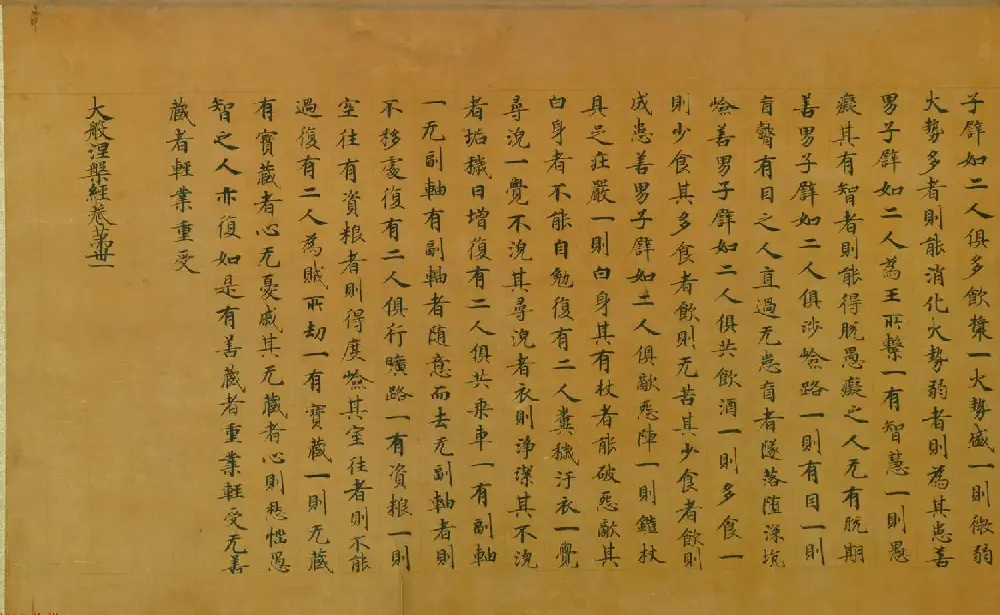 子譬如二人俱多飲漿一火勢盛一則微弱
火勢多者則能消化火勢弱者則為其患善
男子譬如二人為王所繫一有智慧一則愚
癡其有智者則能得脫愚癡之人无有脫期
善男子譬如二人俱涉嶮路一則有目一則
盲瞽有目之人直過无患盲者墜落墮深坑
嶮善男子譬如二人俱共飲酒一則多食一
則少食其多食者飲則无苦其少食者飲則
成患善男子譬如二人俱敵惡陣一則鎧杖
具足莊嚴一則白身其有杖者能破惡敵其
白身者不能自勉復有二人糞穢汙衣一覺
尋浣一覺不浣其尋浣者衣則淨潔其不浣
者垢穢日增復有二人俱共乘車一有副軸
一无副軸有副軸者随意而去无副軸者則
不移處復有二人俱行曠路一有資粮一則
空往有資粮者則得度嶮其空往者則不能
過復有二人為賊所劫一有寶藏一則无藏
有寶藏者心无憂慼其无藏者心則愁惱愚
智之人亦復如是有善藏者重業輕受无善
藏者輕業重受
大般涅槃經卷第卅一